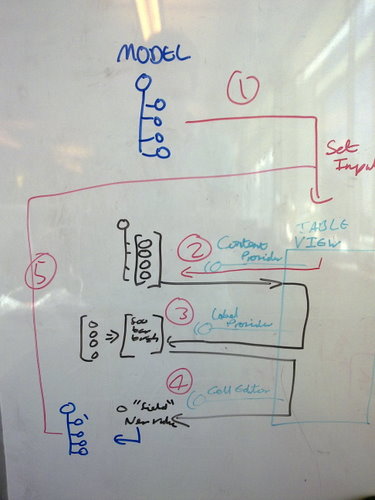 MODEL
1
Set
Input
TABLE
VIEW
2
Content
Provider
5
3
Label
Provider
foo
bar
4
Cell Editor
"field"
New